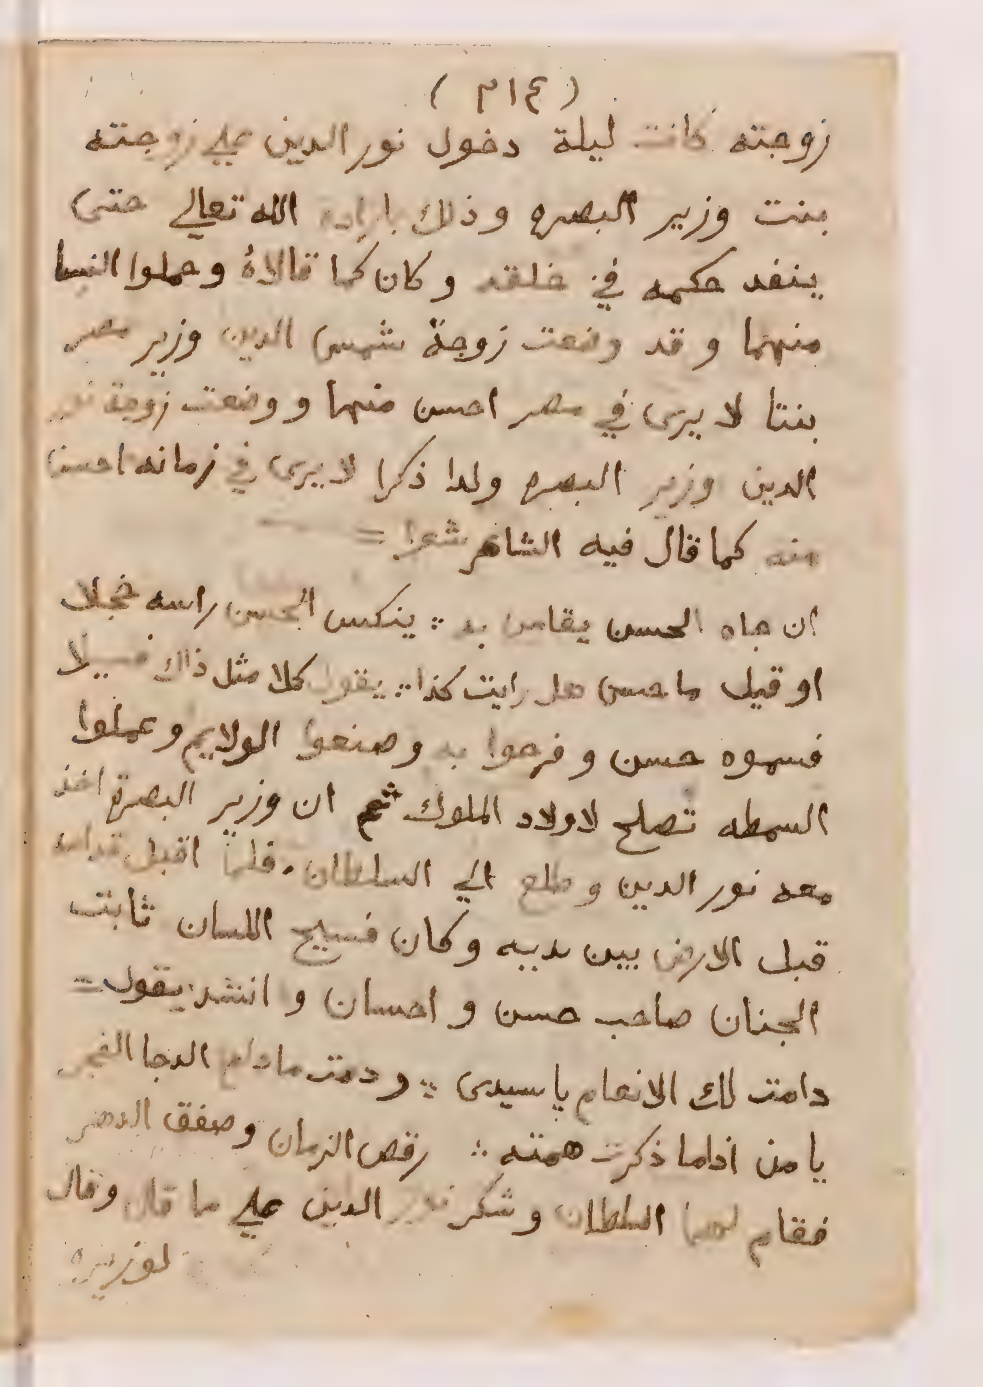 ( ٣١٤ )
زوجته كانت ليلة دخول نور الدين علي زوجته
بنت وزير البصره وذلك باراده الله تعالي حتى
ينفد حكمه في خلقه وكان كما قالاهُ وحملوا النسا
منهما وقد وضعت زوجة شمس الدين وزير مصر
بنتا لا يرى في مصر احسن منها ووضعت زوجة نور
الدين وزير البصره ولدا ذكرا لا يرى في زمانه احسن
منه كما قال فيه الشاعر شعرا =
ان جاه الحسن يقاس به ∴ ينكس الحسن راسه خجلا
او قيل ما حسن هل رايت كذا ∴ يقول كلا مثل ذاك فـلا
فسموه حسن وفرحوا به وصنعوا الولايم وعملوا
السمطه تصلح لاولاد الملوك ثم ان وزير البصرة اخذ
معه نور الدين وطلع الي السلطان . فلما اقبل قدامه
قبل الارض بين يديه وكان فسيح اللسان ثابت
الجنان صاحب حسن و احسان و انشد يقول =
دامت لك الانعام يا سيدى ∴ ودمت ما دام الدجا الفجر
يا من اذا ما ذكرت همته ∴ رقص الزمان وصفق الدهر
فقام لهما السلطان وشكر نور الدين علي ما قال وقال
لوزيره